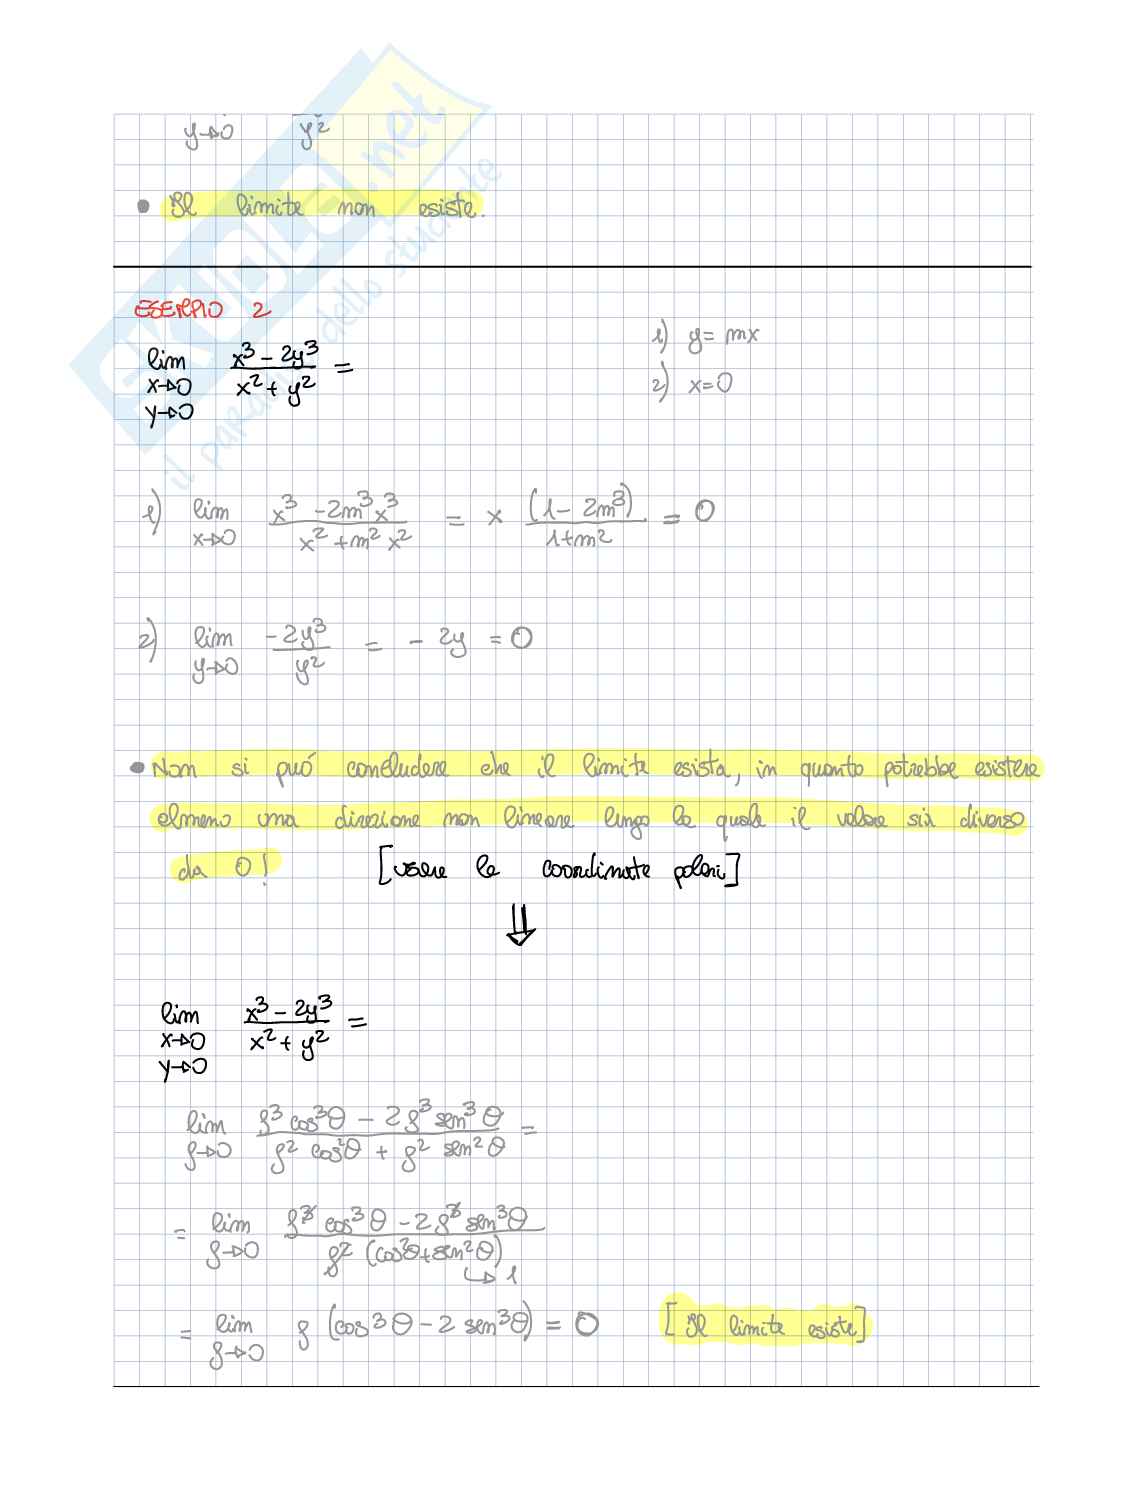 y→0 y²
• Il limite non esiste.
ESEMPIO 2
lim x→0 y→0 (x³ - 2y³)/(x² + y²) =
1) y = mx
2) x = 0
1) lim x→0 (x³ - 2m³x³)/(x² + m²x²) = x (1 - 2m³)/(1+m²) = 0
2) lim y→0 (-2y³)/(y²) = - 2y = 0
• Non si può concludere che il limite esista, in quanto potrebbe esistere
almeno una direzione non lineare lungo la quale il valore sia diverso
da 0! [usare le coordinate polari]
⇓
lim x→0 y→0 (x³ - 2y³)/(x² + y²) =
lim ρ→0 (ρ³ cos³θ - 2ρ³ sen³θ)/(ρ² cos²θ + ρ² sen²θ) =
= lim ρ→0 (ρ³ cos³θ - 2ρ³ sen³θ)/(ρ² (cos²θ + sen²θ))
↳ 1
= lim ρ→0 ρ (cos³θ - 2 sen³θ) = 0 [Il limite esiste]
SKUOLA.net
il paradiso dello studente